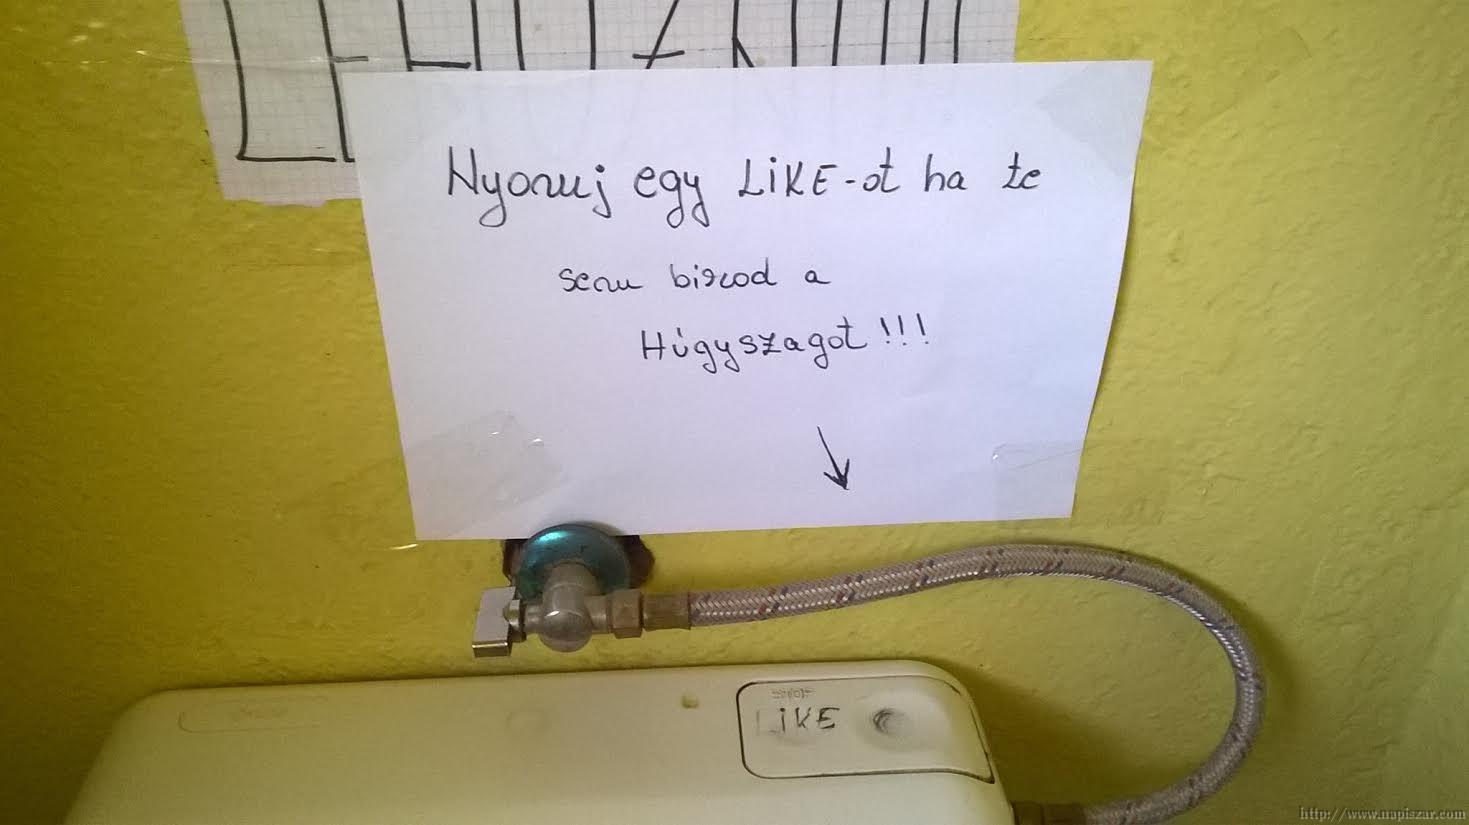 Nyomj egy LIKE-ot ha te
sem birod a
Húgyszagot!!!
LIKE
http://www.napiszar.com